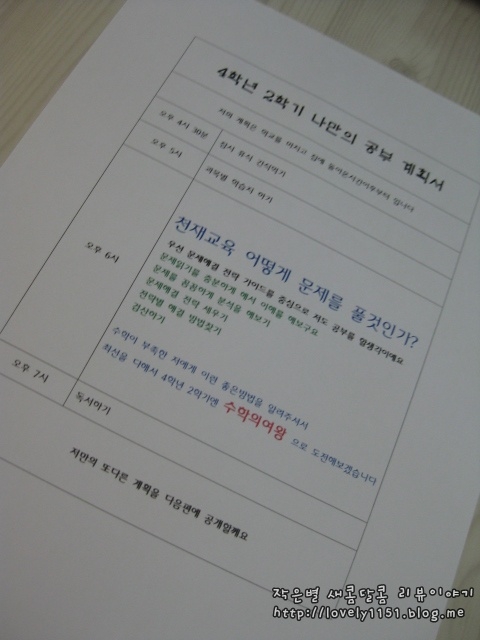 4학년 2학기 나만의 공부 계획서
저의 계획은 학교를 마치고 집에 돌아온시간이후부터 입니다
오후 4시 30분 잠시 휴식 간식먹기
오후 5시 과목별 학습지 하기
오후 6시
천재교육 어떻게 문제를 풀것인가?
우선 문제해결 전략 가이드를 중심으로 저도 공부를 할생각이예요
문제읽기를 충분하게 해서 이해를 해보구요
문제를 꼼꼼하게 분석을 해보기
문제해결 전략 세우기
전략별 해결 방법찾기
검산하기
수학이 부족한 저에게 이런 좋은방법을 알려주셔서
최선을 다해서 4학년 2학기엔 수학의여왕 으로 도전해보겠습니다
오후 7시 독서하기
저만의 또다른 계획을 다음편에 공개할께요
작은별 새콤달콤 리뷰이야기
http://lovely1151.blog.me